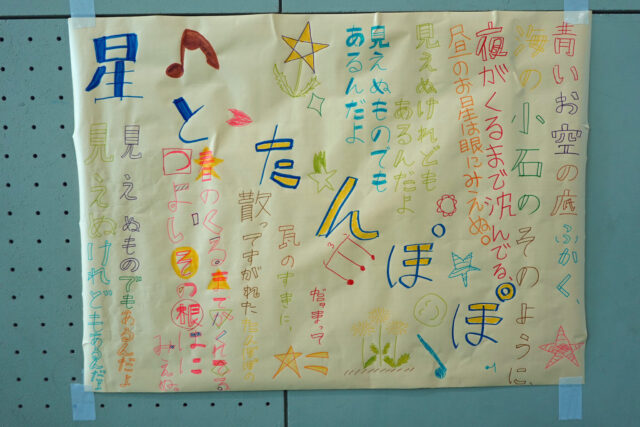 星とたんぽぽ
青いお空の底ふかく、
海の小石のそのように、
夜がくるまで沈んでる、
昼のお星は眼にみえぬ。
見えぬけれども
あるんだよ
見えぬものでも
あるんだよ
散ってすがれたたんぽぽの
瓦のすきに、
だまって
春のくるまでかくれてる
つよいその根は眼にみえぬ
見えぬけれどもあるんだよ
見えぬものでもあるんだよ